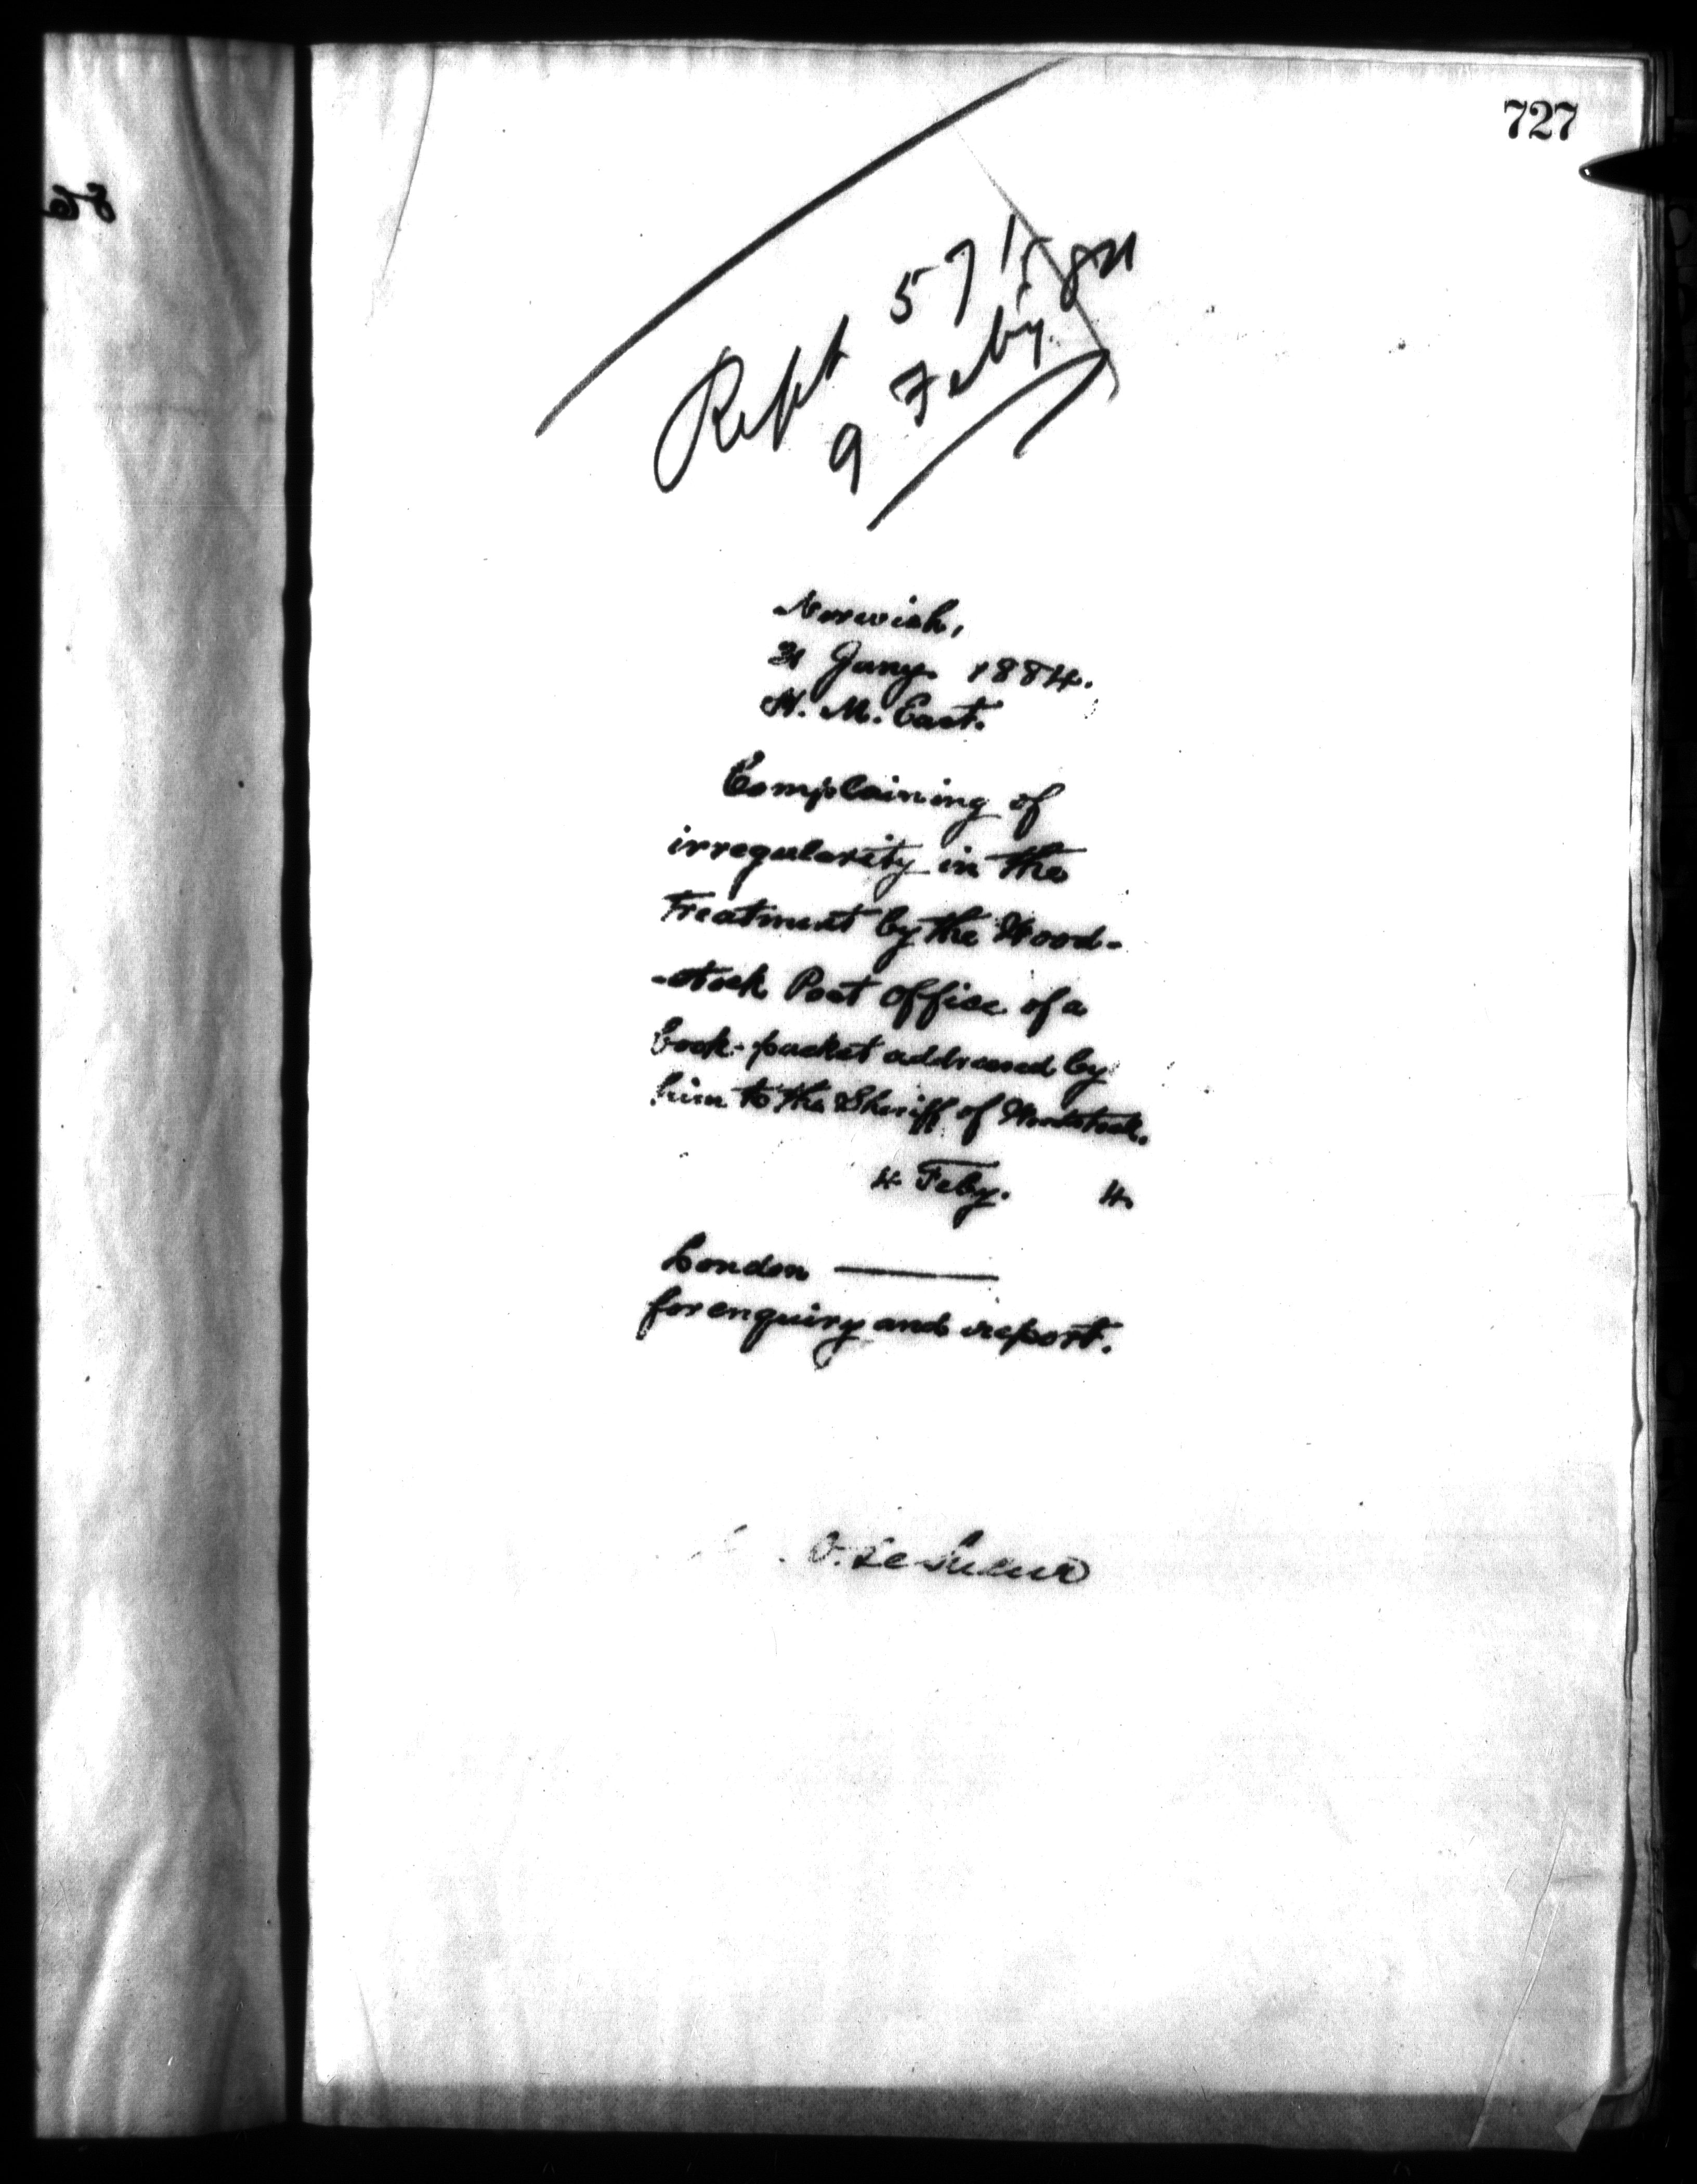 727
Rept 571
9 Feby. 84
Norwich,
31 Jany. 1884.
H. M. East.
Complaining of
irregularity in the
Treatment by the Wood-
-stock Post Office of a
book-packet addressed by
him to the Sheriff of Woodstock.
4 Feby. 4.
London ———
for enquiry and report.
O. Le Sueur